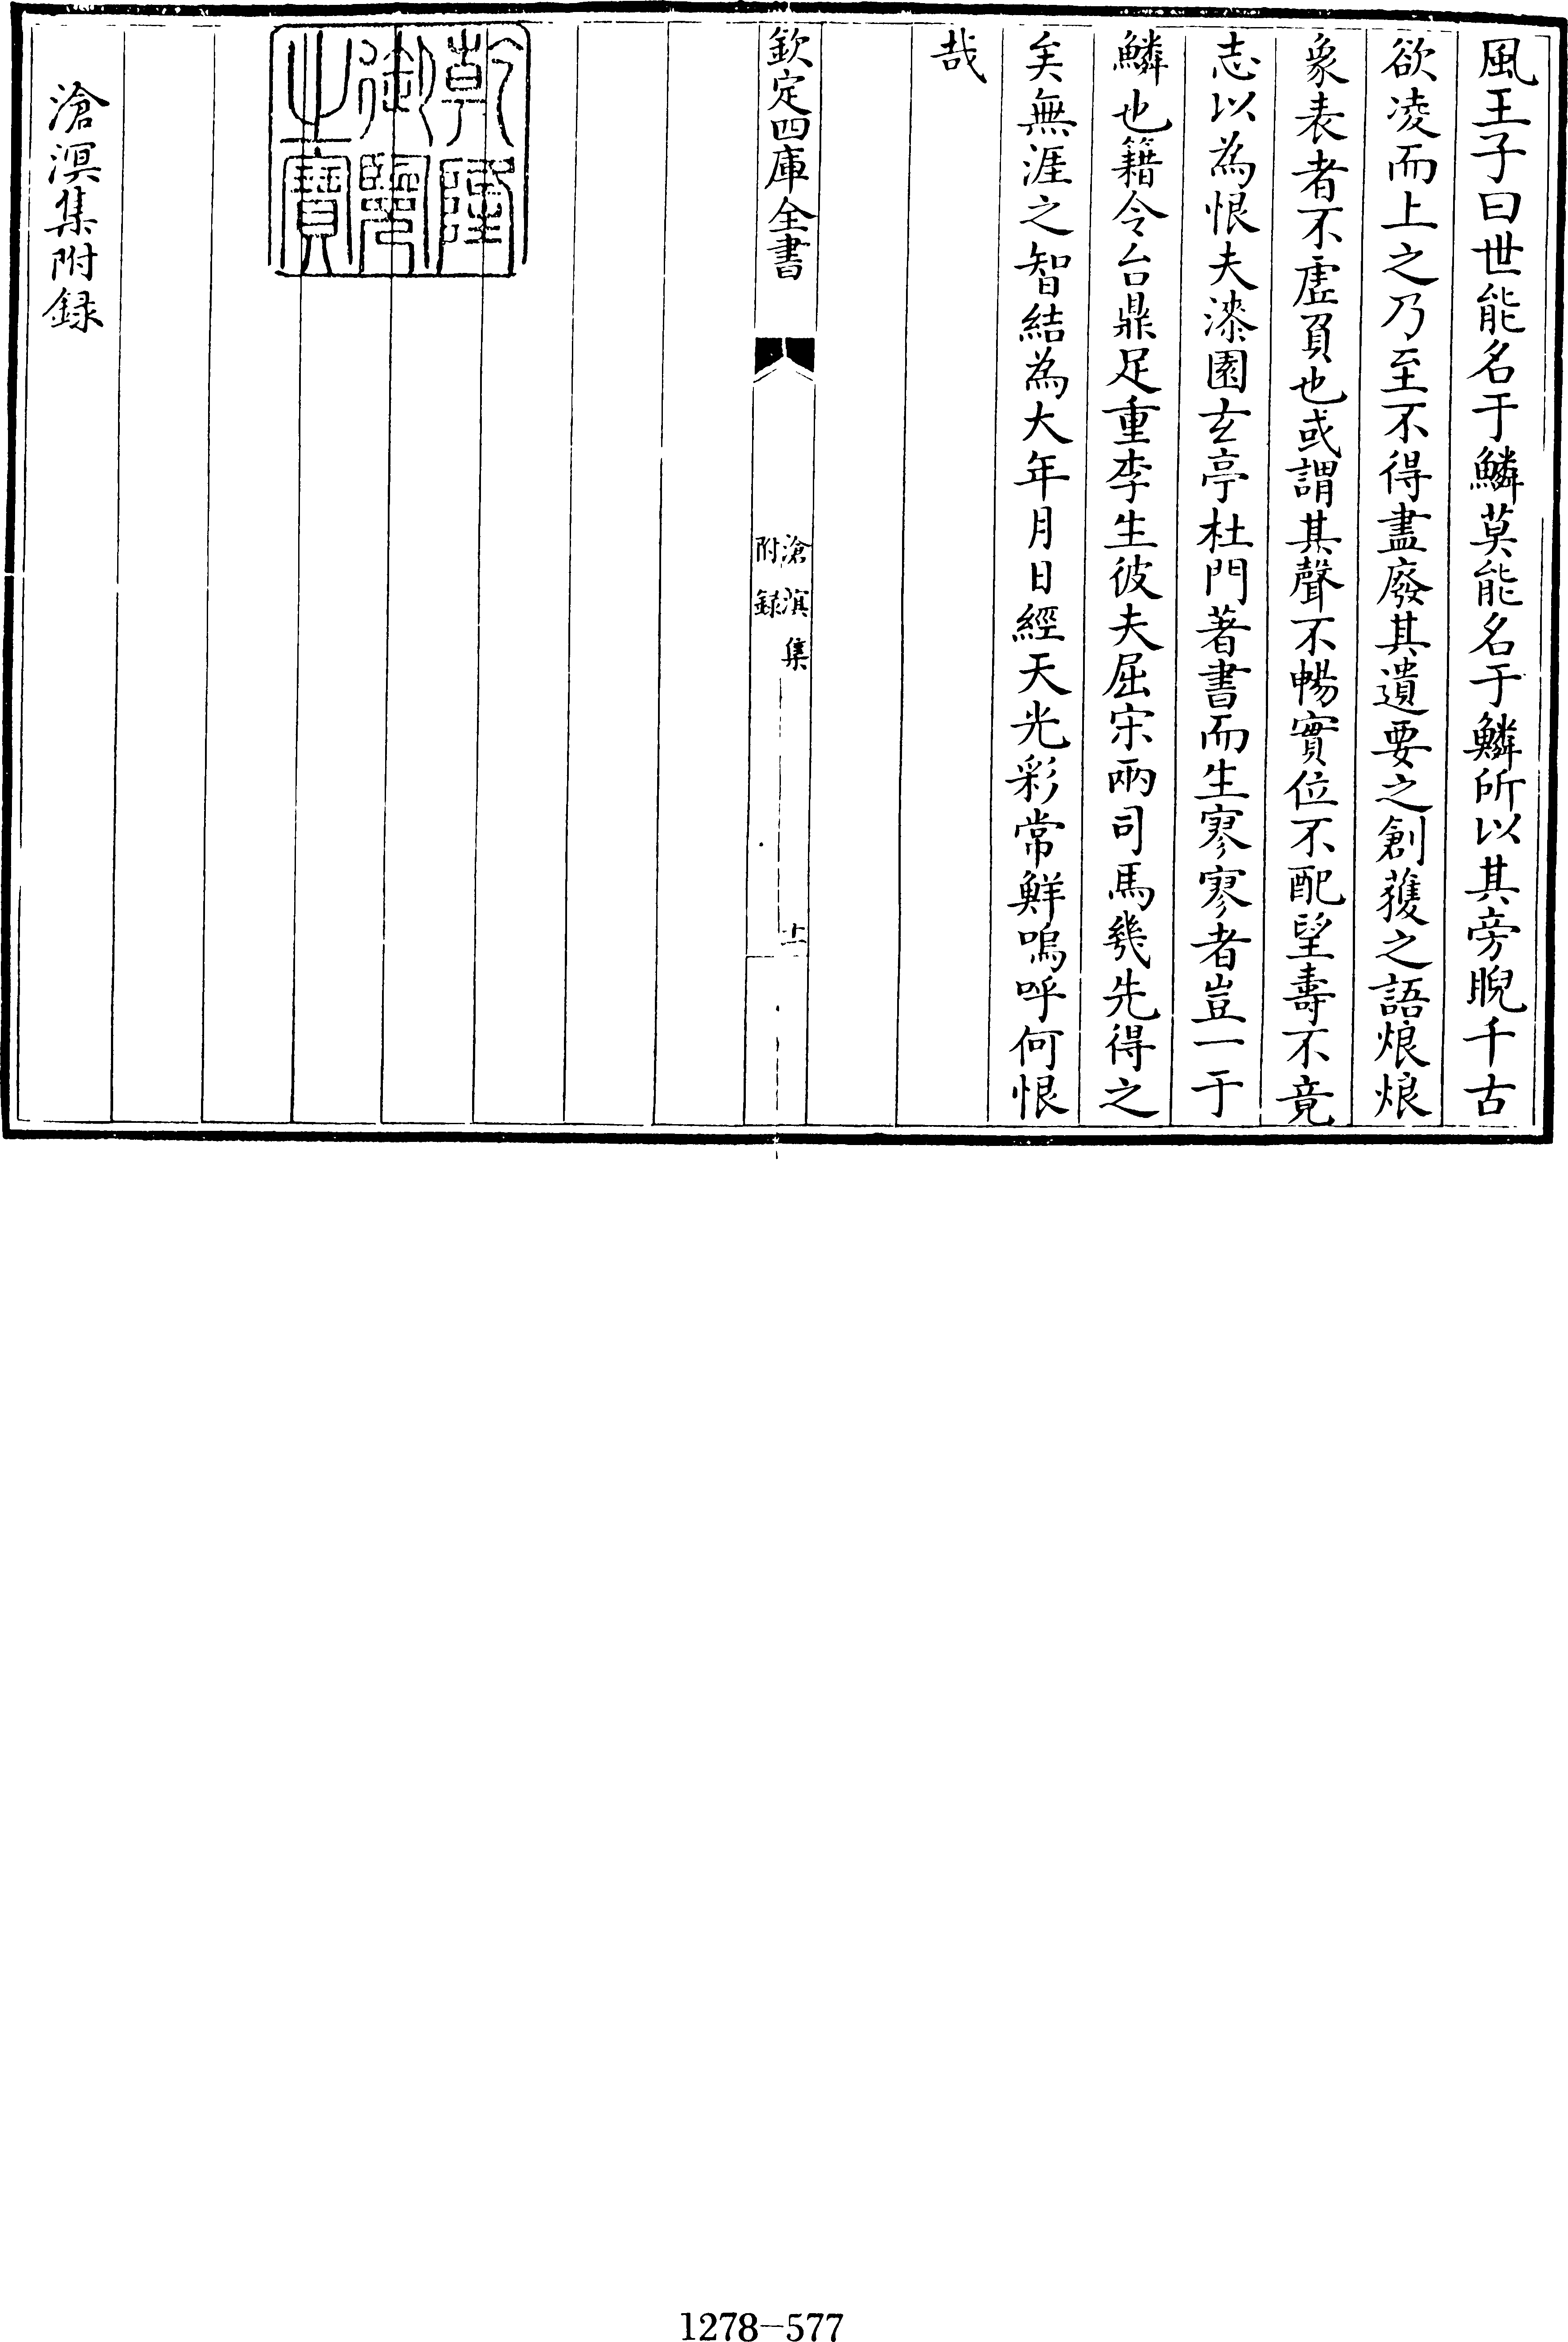 風王子曰世能名于鱗莫能名于鱗所以其旁睨千古
欲凌而上之乃至不得盡廢其遺要之創獲之語烺烺
象表者不虛負也或謂其聲不暢實位不配望壽不竟
志以為恨夫漆園玄亭杜門著書而生寥寥者豈一于
鱗也籍令台鼎足重李生彼夫屈宋兩司馬幾先得之
矣無涯之智結為大年月日經天光彩常鮮嗚呼何恨
哉
欽定四庫全書
滄溟集
附録
十二
乾隆
御覽
之寶
滄溟集附録
1278-577